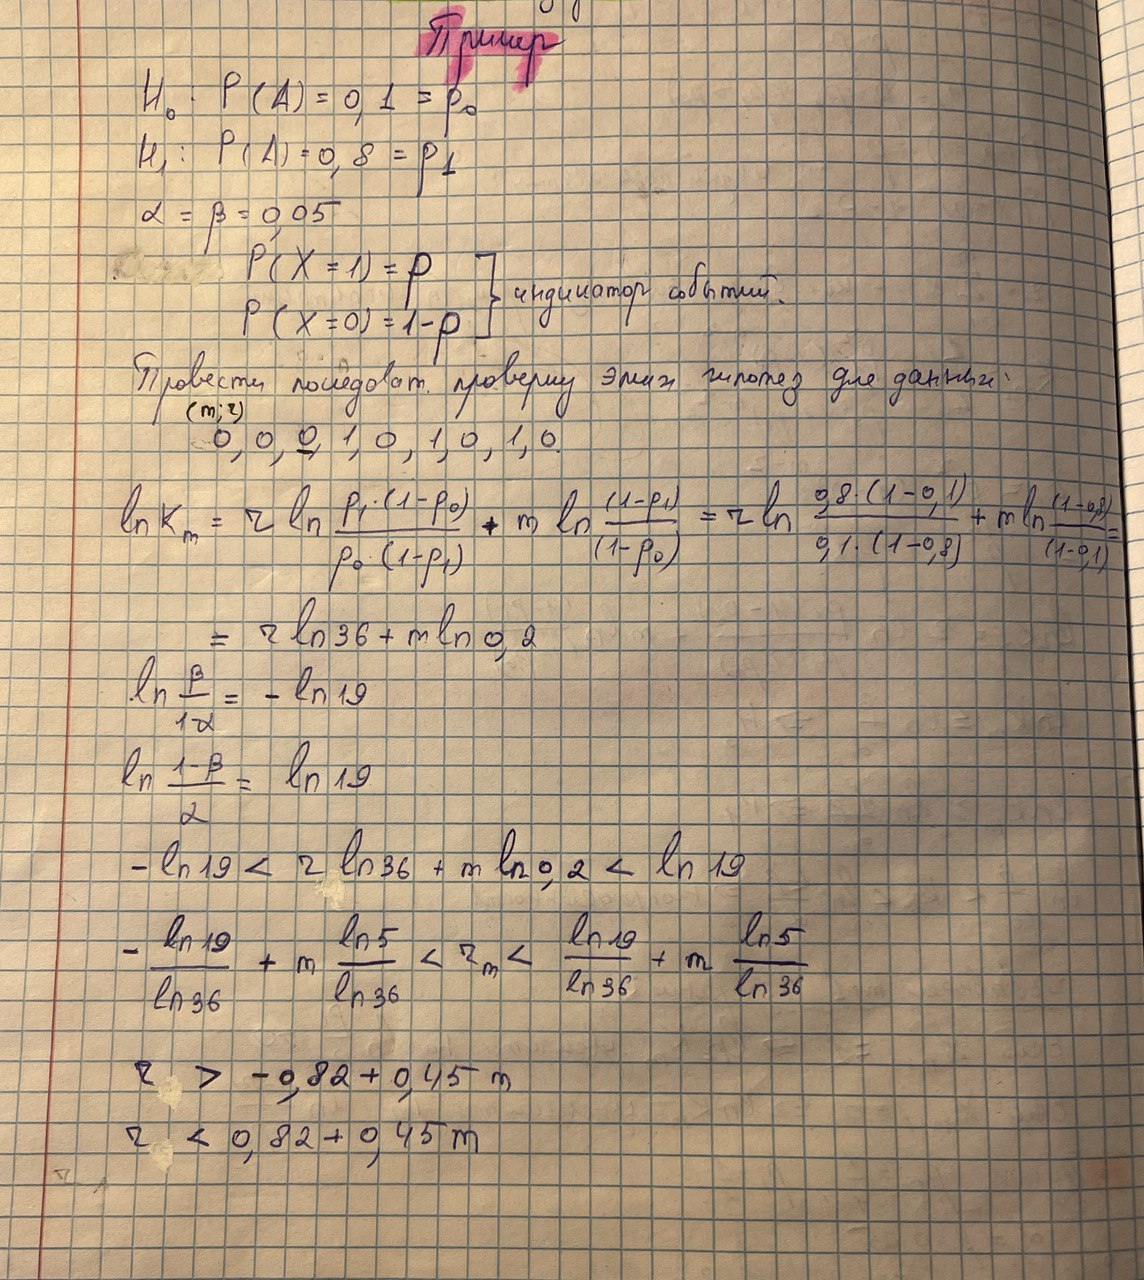 Пример
H₀: P(A) = 0,1 = p₀
H₁: P(A) = 0,8 = p1
α = β = 0,05
P(X = 1) = p
P(X = 0) = 1-p
индикатор событий.
Провести последоват. проверку этих гипотез для данных:
(m; r)
0, 0, 0, 1, 0, 1, 0, 1, 0.
ln Kₘ = r ln (p₁·(1-p₀))/(p₀·(1-p₁)) + m ln (1-p₁)/(1-p₀) = r ln (0,8·(1-0,1))/(0,1·(1-0,8)) + m ln (1-0,8)/(1-0,1) =
= r ln 36 + m ln 0,2
ln β/(1-α) = - ln 19
ln (1-β)/α = ln 19
- ln 19 < r ln 36 + m ln 0,2 < ln 19
- ln 19/ln 36 + m ln 5/ln 36 < rₘ < ln 19/ln 36 + m ln 5/ln 36
r > -0,82 + 0,45 m
r < 0,82 + 0,45 m